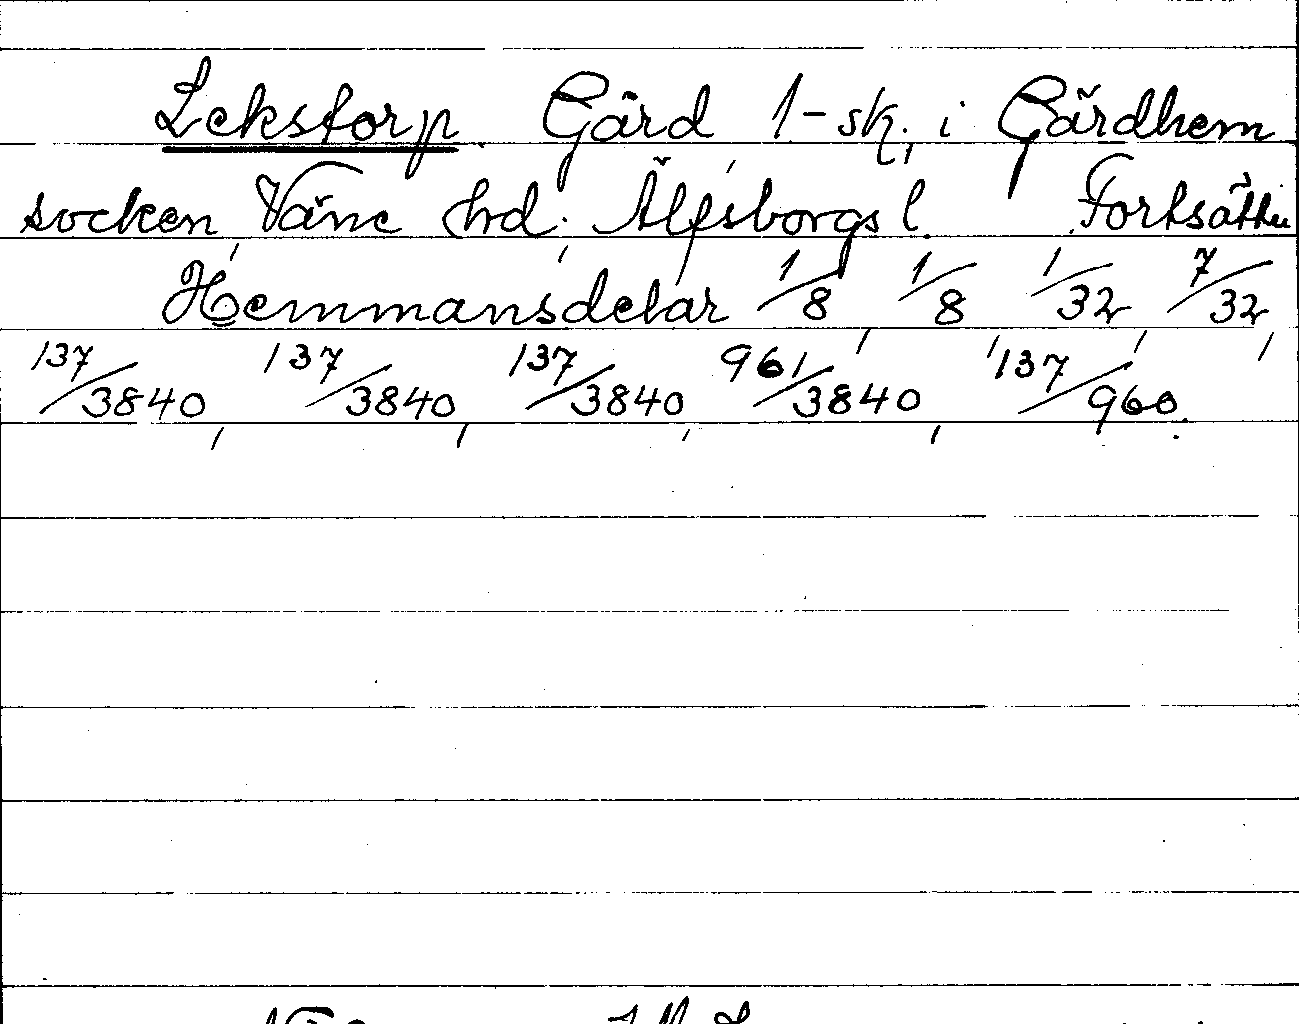 Lekstorp. Gård 1-sk., i Gärdhem
socken, Väne hd., Älfsborgs l. Fortsätter
Hemmansdelar 1/8, 1/8, 1/32, 7/32,
137/3840, 137/3840, 137/3840, 961/3840, 137/960.